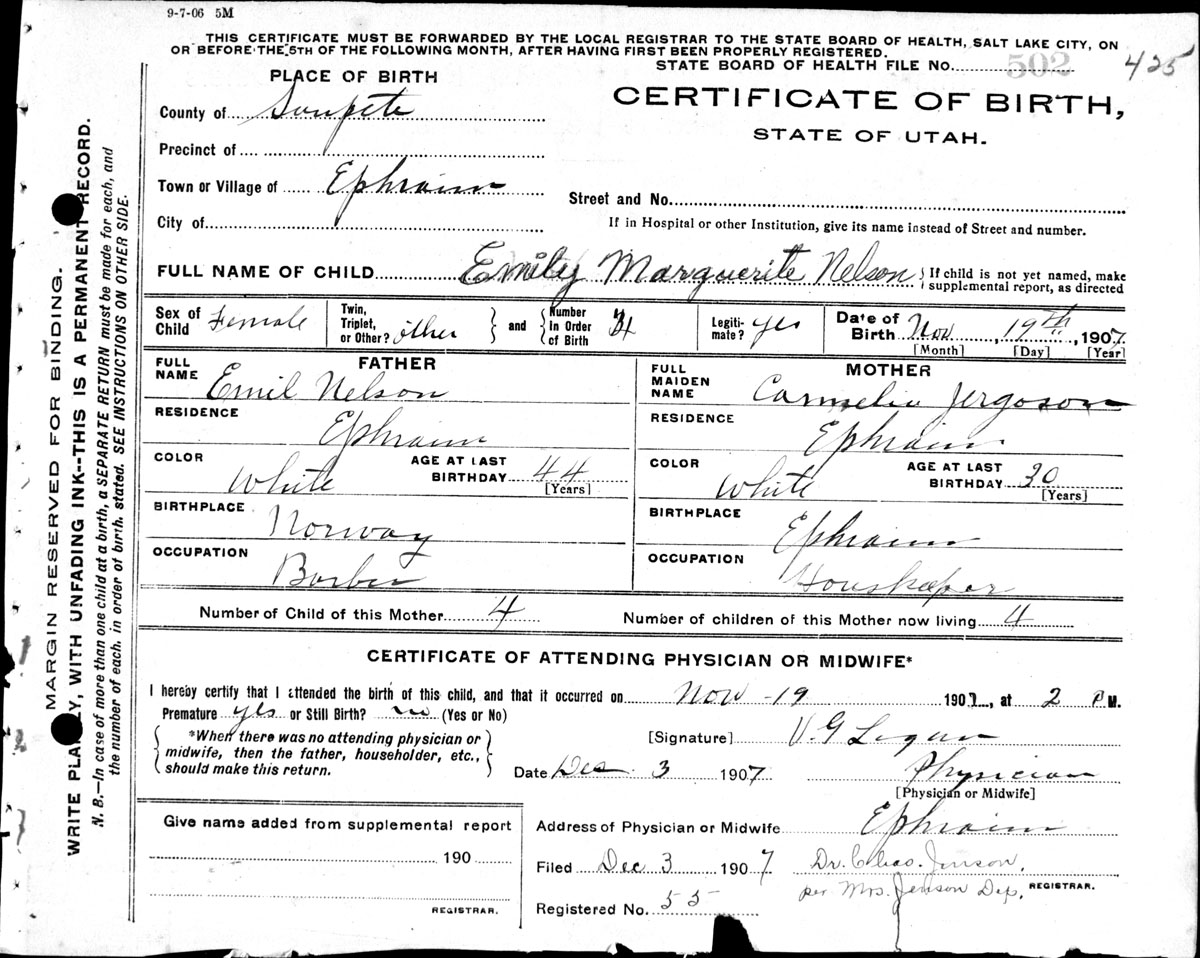 9-7-06 5M
THIS CERTIFICATE MUST BE FORWARDED BY THE LOCAL REGISTRAR TO THE STATE BOARD OF HEALTH, SALT LAKE CITY, ON
OR BEFORE THE 5TH OF THE FOLLOWING MONTH, AFTER HAVING FIRST BEEN PROPERLY REGISTERED.
STATE BOARD OF HEALTH FILE No. 502 425
PLACE OF BIRTH
CERTIFICATE OF BIRTH,
STATE OF UTAH.
County of Sanpete
Precinct of
Town or Village of Ephraim
Street and No.
City of
If in Hospital or other Institution, give its name instead of Street and number.
FULL NAME OF CHILD Emily Marguerite Nelson
{ If child is not yet named, make
supplemental report, as directed
Sex of Child Female
Twin, Triplet, or Other? other } and { Number In Order of Birth 4
Legiti-mate? yes
Date of Birth Nov, 19th, 1907
[Month] [Day] [Year]
FATHER
FULL NAME Emil Nelson
RESIDENCE Ephraim
COLOR White
AGE AT LAST BIRTHDAY 44
[Years]
BIRTHPLACE Norway
OCCUPATION Barber
MOTHER
FULL MAIDEN NAME Carmelia Jergoson
RESIDENCE Ephraim
COLOR White
AGE AT LAST BIRTHDAY 30
[Years]
BIRTHPLACE Ephraim
OCCUPATION Houskeeper
Number of Child of this Mother 4
Number of children of this Mother now living 4
CERTIFICATE OF ATTENDING PHYSICIAN OR MIDWIFE*
I hereby certify that I attended the birth of this child, and that it occurred on Nov - 19 1907, at 2 P M.
Premature yes or Still Birth? no (Yes or No)
{ *When there was no attending physician or
midwife, then the father, householder, etc.,
should make this return. }
[Signature] U. G Logan
Date Dec 3 1907
Physician
[Physician or Midwife]
Give name added from supplemental report
190
REGISTRAR.
Address of Physician or Midwife Ephraim
Filed Dec 3 1907
Dr. Chas. Jenson.
per Mrs. Jenson Dep. REGISTRAR.
Registered No. 55
MARGIN RESERVED FOR BINDING.
WRITE PLAINLY, WITH UNFADING INK--THIS IS A PERMANENT RECORD.
N. B.—In case of more than one child at a birth, a SEPARATE RETURN must be made for each, and
the number of each, in order of birth, stated. SEE INSTRUCTIONS ON OTHER SIDE.